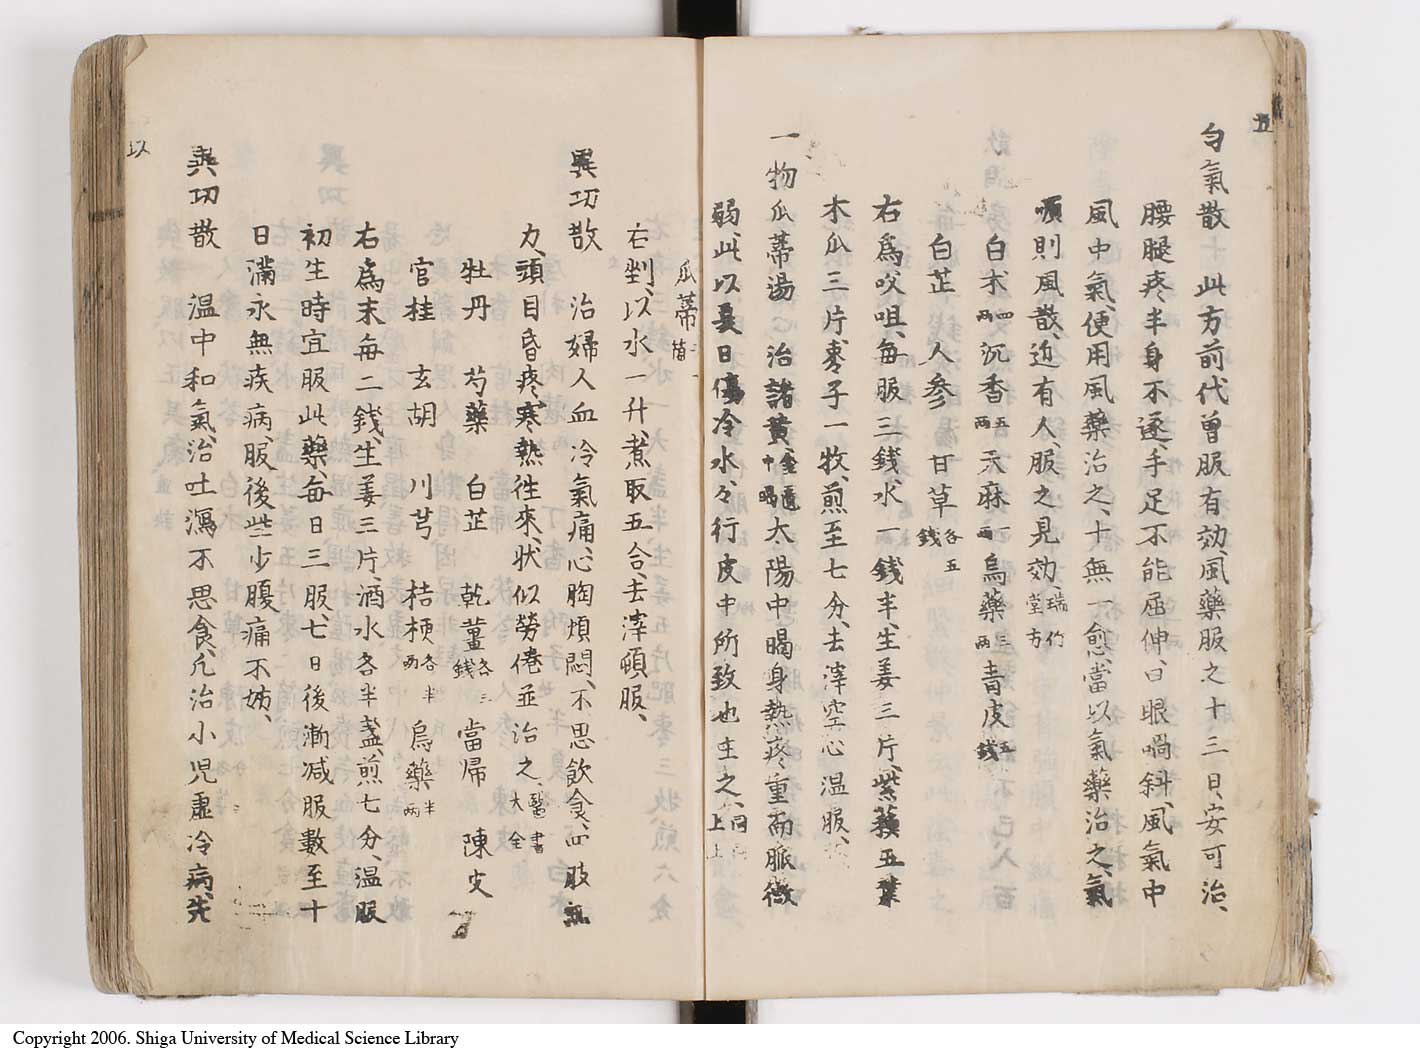 五
匀氣散　此方前代曽服有効、風藥服之十三日、安可治、
腰腿疼半身不遂、手足不能屈伸、口眼喎斜、風氣中
風中氣、便用風藥治之、十無一愈、當以氣藥治之、氣
順則風散、近有人、服之見効、瑞竹堂方
白术四兩沉香五兩天麻一兩烏藥三兩青皮五錢
白芷　人参　甘草各五錢
右爲㕮咀、毎服三錢、水一錢半、生姜三片、紫蘇五葉
木瓜三片、棗子一枚、煎至七分、去滓空心温服、
一物瓜蒂湯　治諸黄、金匱中暍太陽中暍身熱疼重而脈微
弱、此以夏日傷冷水、々行皮中所致也主之、同上
瓜蒂二箇
右剉、以水一升、煮取五合、去滓頓服、
異功散　治婦人血冷氣痛、心胸煩悶、不思飲食、四肢無
力、頭目昏疼寒熱徃來、状似勞倦並治之、醫書大全
牡丹　芍藥　白芷　乾薑各三錢　當帰　陳皮
官桂　玄胡　川芎　桔梗各半兩　烏藥半兩
右爲末毎二錢、生姜三片、酒水各半盞、煎七分、温服
初生時宜服此藥毎日三服、七日後漸减服數至十
日滿永無疾病、服後些少腹痛不妨、
異功散　温中和氣、治吐瀉不思食、凡治小児虚冷病、先
以
Copyright 2006. Shiga University of Medical Science Library